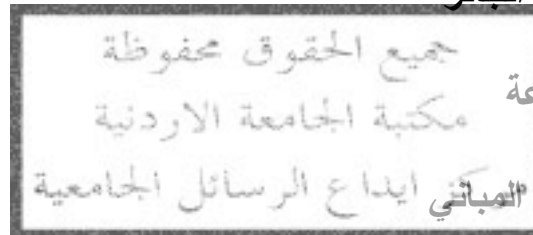 جميع الحقوق محفوظة
مكتبة الجامعة الاردنية
مركز ايداع الرسائل الجامعية
المباني